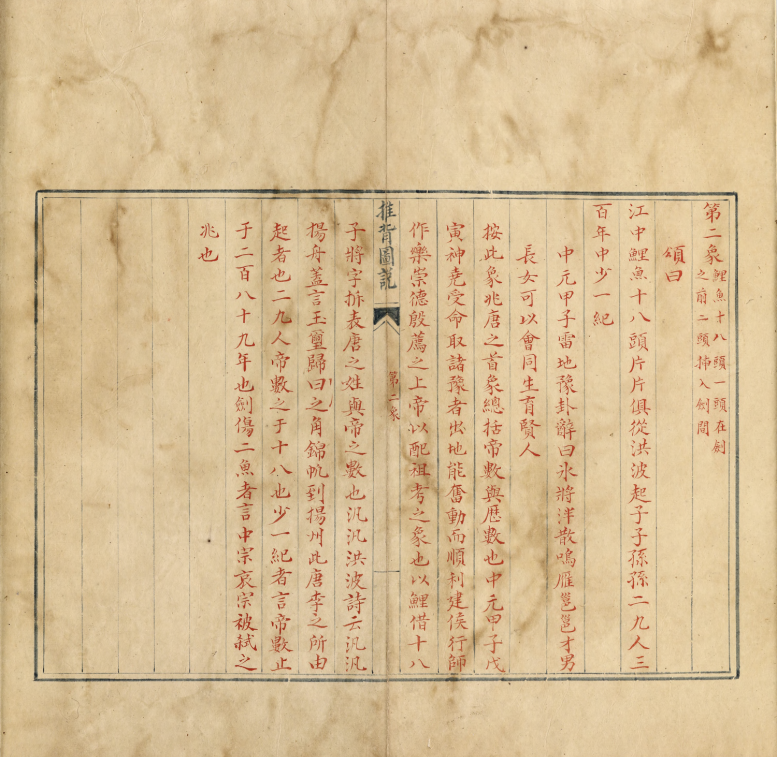 第二象鯉魚十八頭一頭在劍
之前二頭揷入劍間
頌曰
江中鯉魚十八頭片片俱從洪波起子子孫孫二九人三
百年中少一紀
中元甲子雷地豫卦辭曰氷將泮散鳴雁邕邕才男
長女可以會同生育賢人
按此象兆唐之首象總括帝數與歷數也中元甲子戊
寅神堯受命取諸豫者出地能奮動而順利建侯行師
作樂崇德殷薦之上帝以配祖考之象也以鯉借十八
推背圖說
第二象
子將字拆表唐之姓與帝之數也汎汎洪波詩云汎汎
揚舟蓋言玉璽歸曰之角錦帆到揚州此唐李之所由
起者也二九人帝數之于十八也少一紀者言帝數止
于二百八十九年也劍傷二魚者言中宗哀宗被弑之
兆也